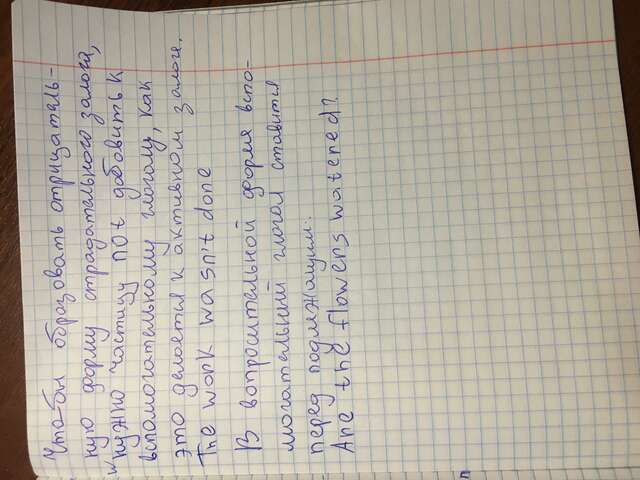 Что-бы образовать отрицатель-
ную форму страдательного залога,
нужно частицу not добавить к
вспомогательному глаголу, как
это делается к активном залоге.
The work wasn't done
В вопросительной форме вспо-
могательный глагол ставится
перед подлежащим:
Are the flowers watered?